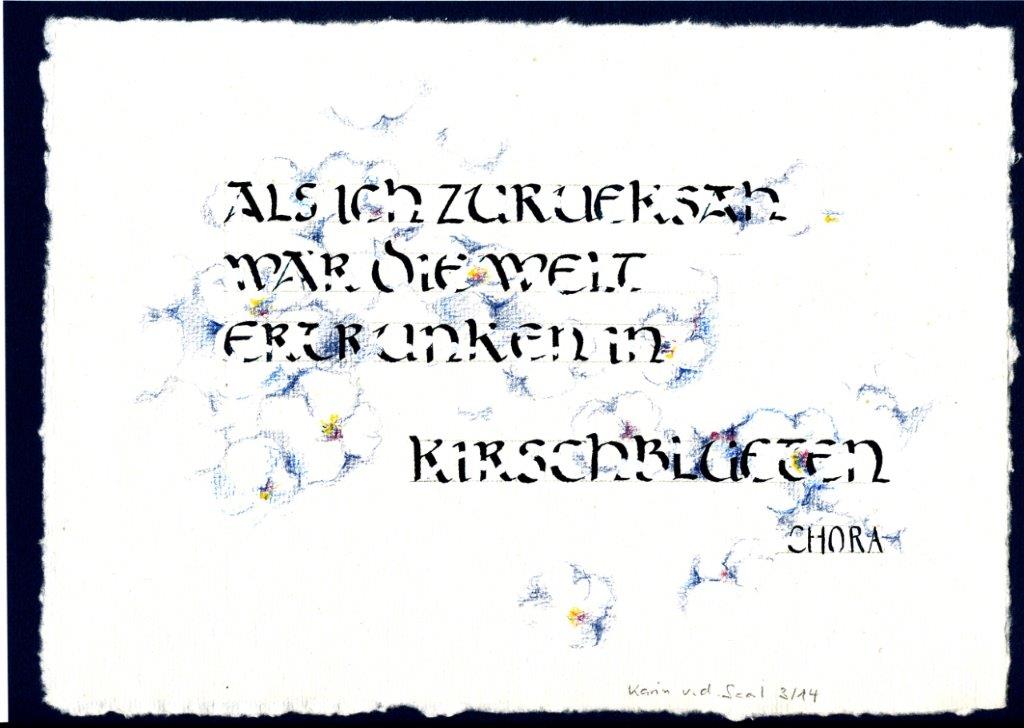 ALS ICH ZURUEKSAH
WAR DIE WELT
ERTRUNKEN IN
KIRSCHBLUETEN
CHORA
Karin v.d. Saal 3/14